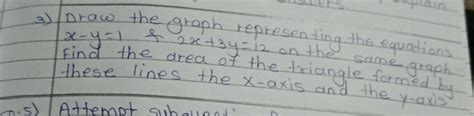 explain
3) Draw the graph representing the equations
x-y=1 & 2x+3y=12 on the same graph
Find the area of the triangle formed by
these lines the x-axis and the y-axis
Attempt